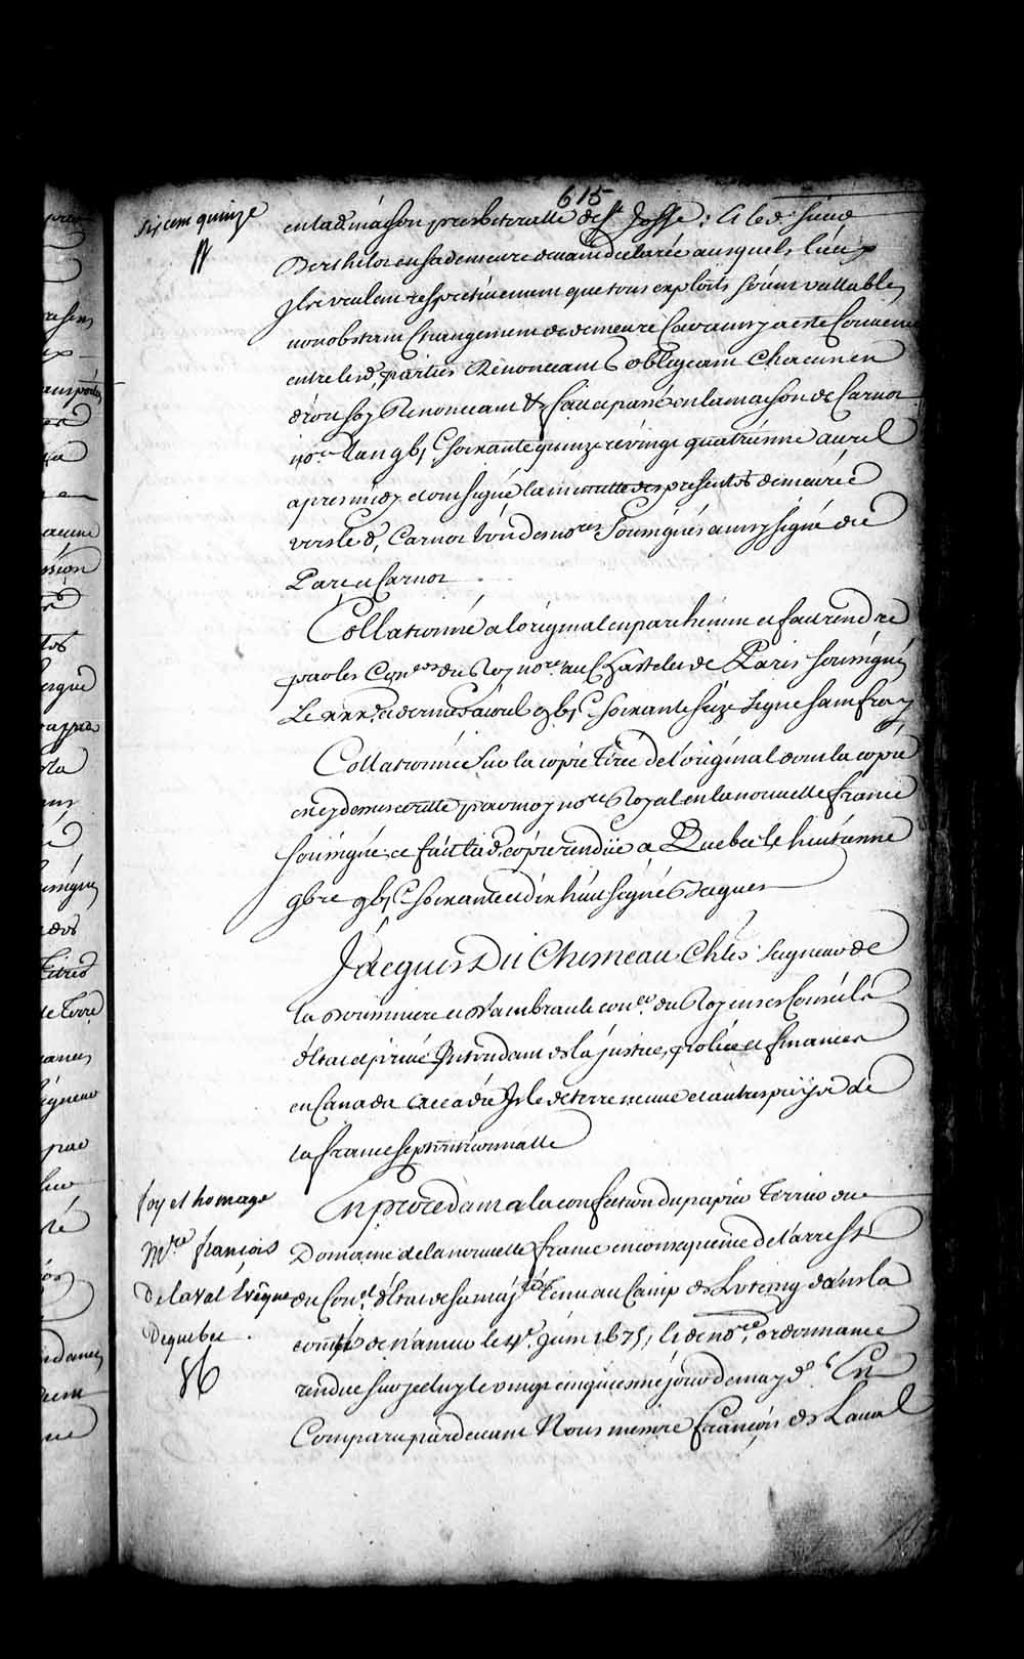 615
six cem quinze
en lad. maison presbiteralle de St Josse : Et led. sieur
Berthelot en sa demeure devant declarée ausquels lieux
Ils veulent respectivement que tous exploits soient vallables
nonobstant Changement de demeure Car ainsy a esté Convenu
entre lesd. parties Renonceant obligeant Chacun en
droit soy Renonceant &c fait et passé en la maison de Carnot
no.re l'an gbj C soixante quinze le vingt quatriéme avril
apres midy et ont signé la minutte des presentes demeurée
vers led. Carnot l'un des no.res Soussignés ainsy signé de
Paris et Carnot
Collationné a l'original en parchemin et fait rendre
par les Con.ers du Roy no.res au Chastelet de Paris soussignés
Le xxx.e et dernier avril gbj C soixante seize signé sainfray
Collationnée sur la copie tirée de l'original dont la copie
en cy dessus et cette par moy no.re Royal en la nouvelle france
soussigné; ce fait lad. copie rendüe a Quebec le huitiéme
gbre gbj C soixante et dix huit signé Becquet
Jacques Du Chesneau Ch.lier Seigneur de
la Doussiniere et d'ambrault con.er du Roy en ses Conseils
d'Etat et privé Intendant de la justice, police et finances
en Canada Accadie Isle de terre neuve et autres païs de
la france septentrionnalle
foy et homage
M.re françois
De laval Evêque
De quebec .
86
En procedant a la confection du papier terrier du
Domaine de la nouvelle france en consequence de l'arrest
du Con.el d'Etat de sa maj.té tenu au Camp de Luting dans la
comté de Namur le 4.e Juin 1675, et de no.re ordonnance
rendue sur jceluy le vingt cinquiesme jour de may d.r Est
Comparu pardevant Nous messire françois de Laval